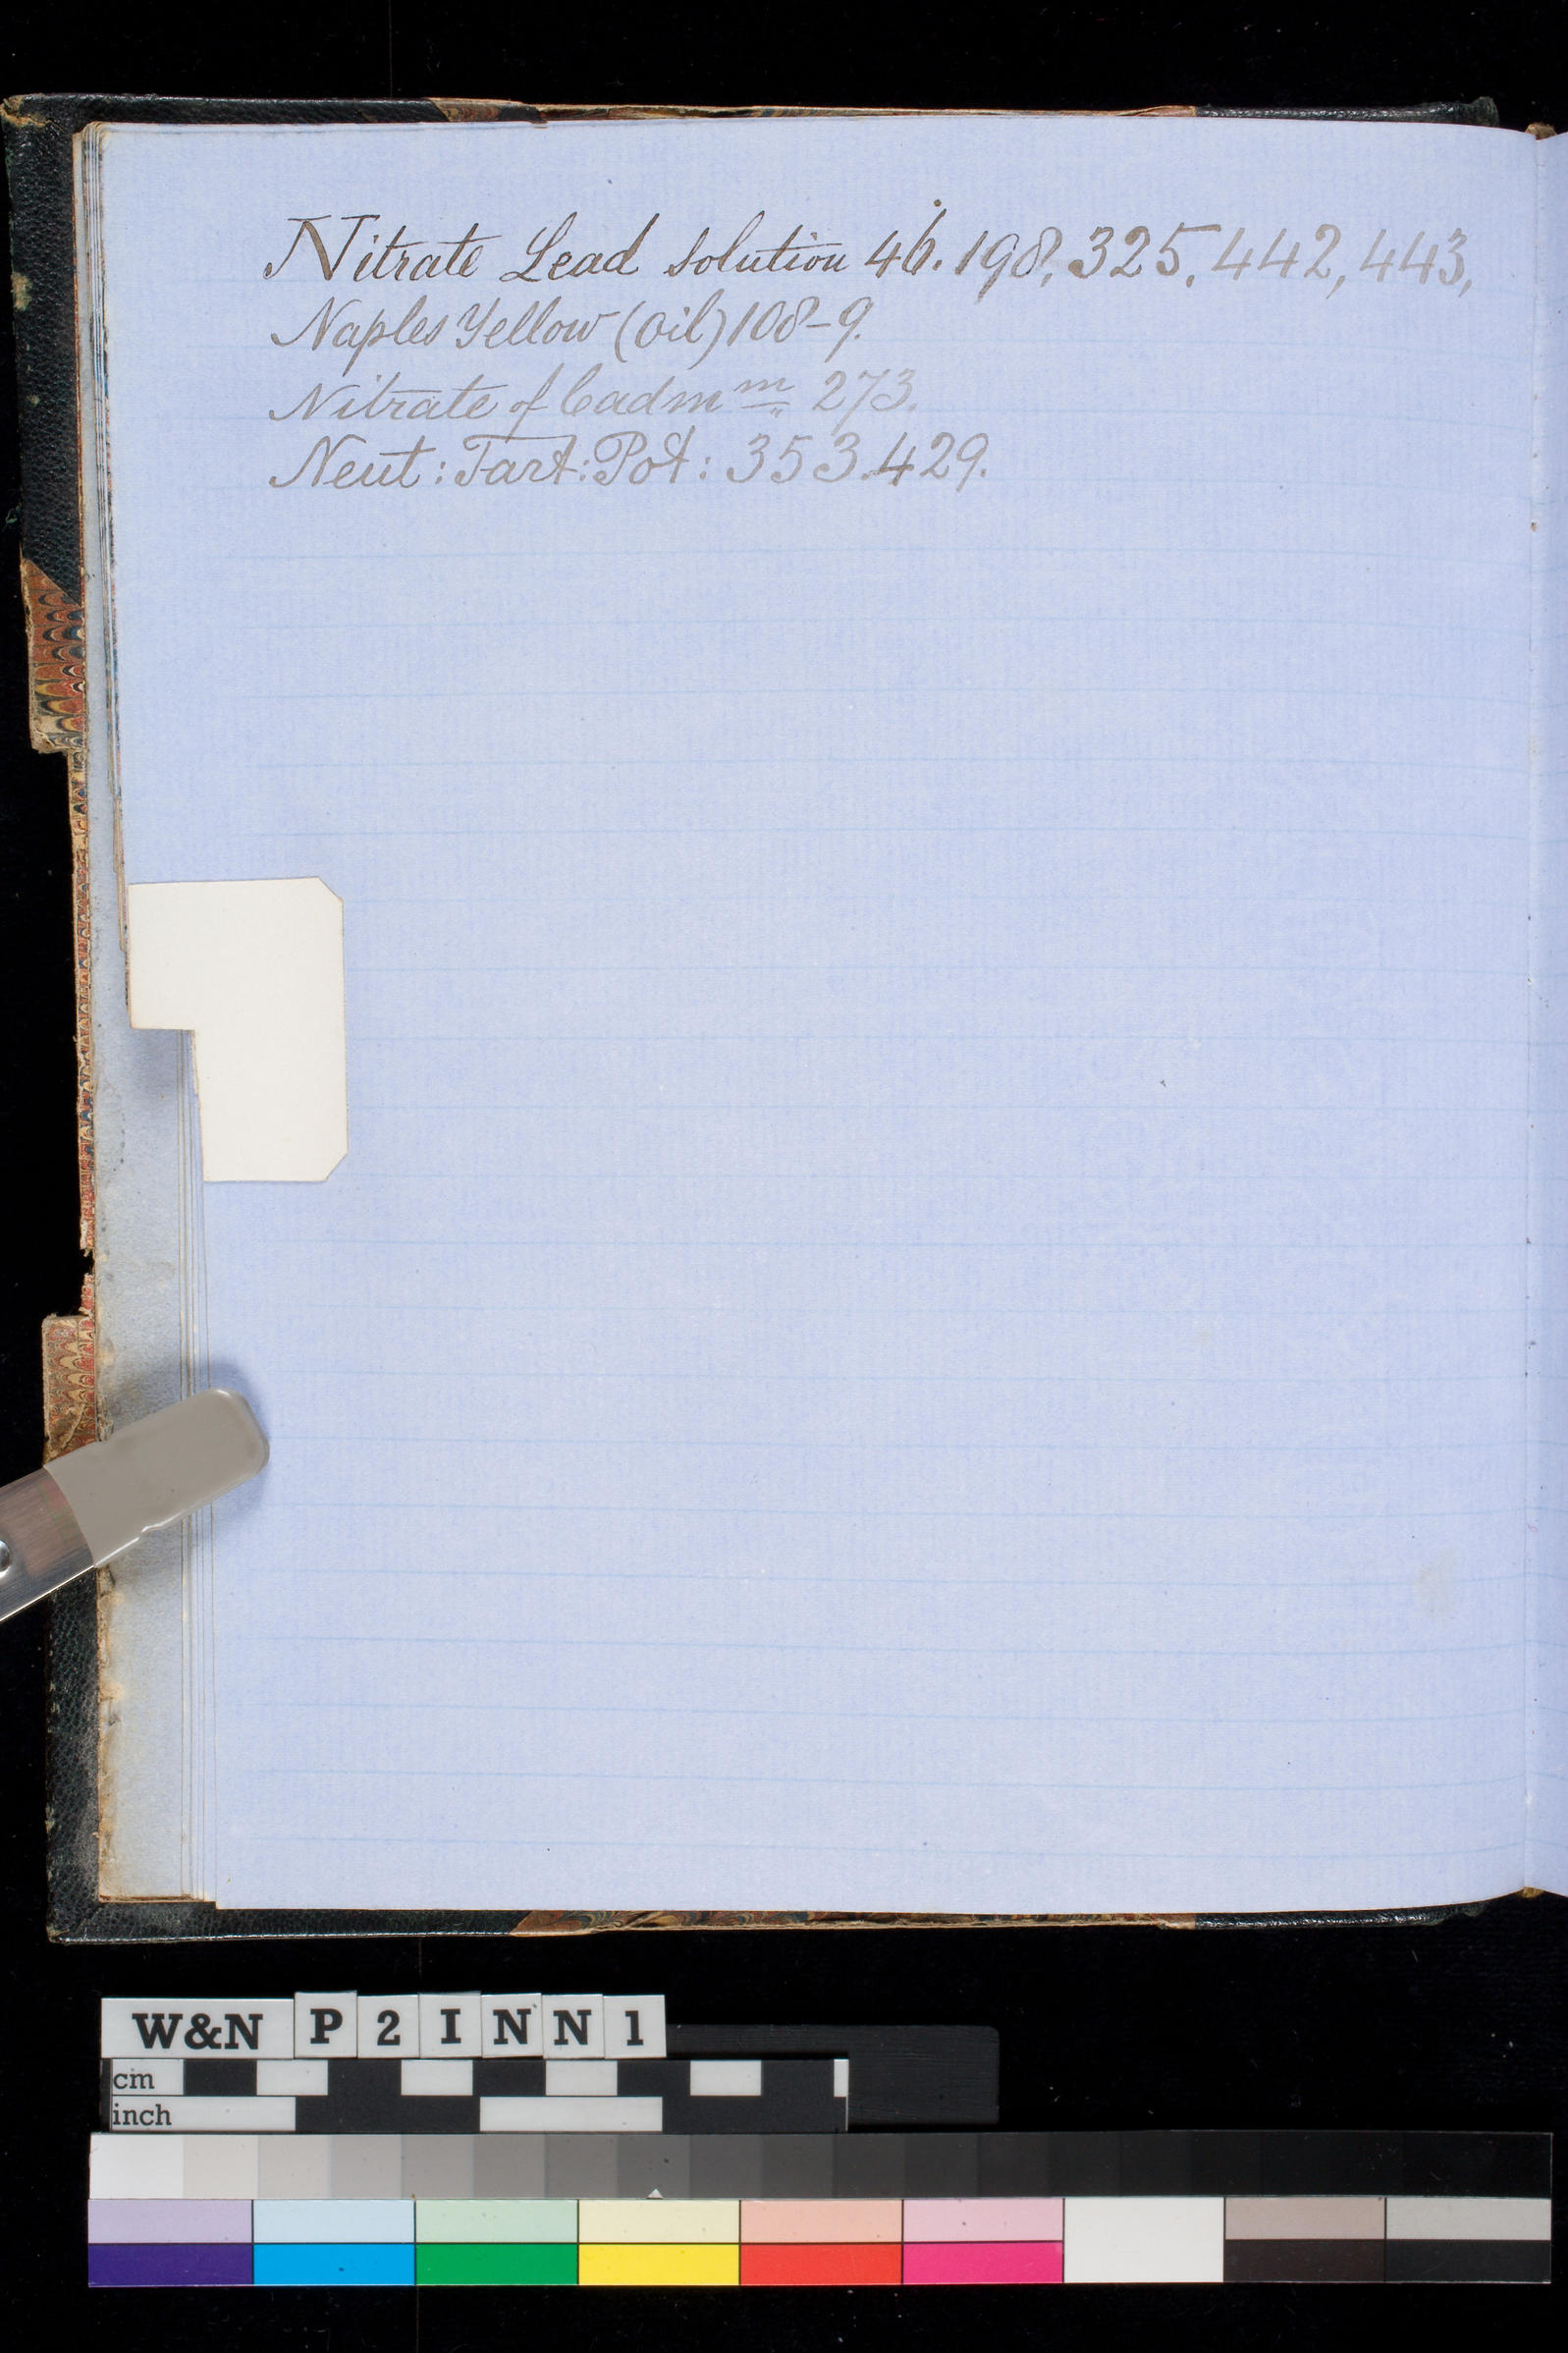 Nitrate Lead solution 46. 198, 325, 442, 443,
Naples Yellow (Oil) 108-9.
Nitrate of Cadmm. 273.
Neut: Tart: Pot: 353. 429.
W&N P 2 I N N 1
cm
inch